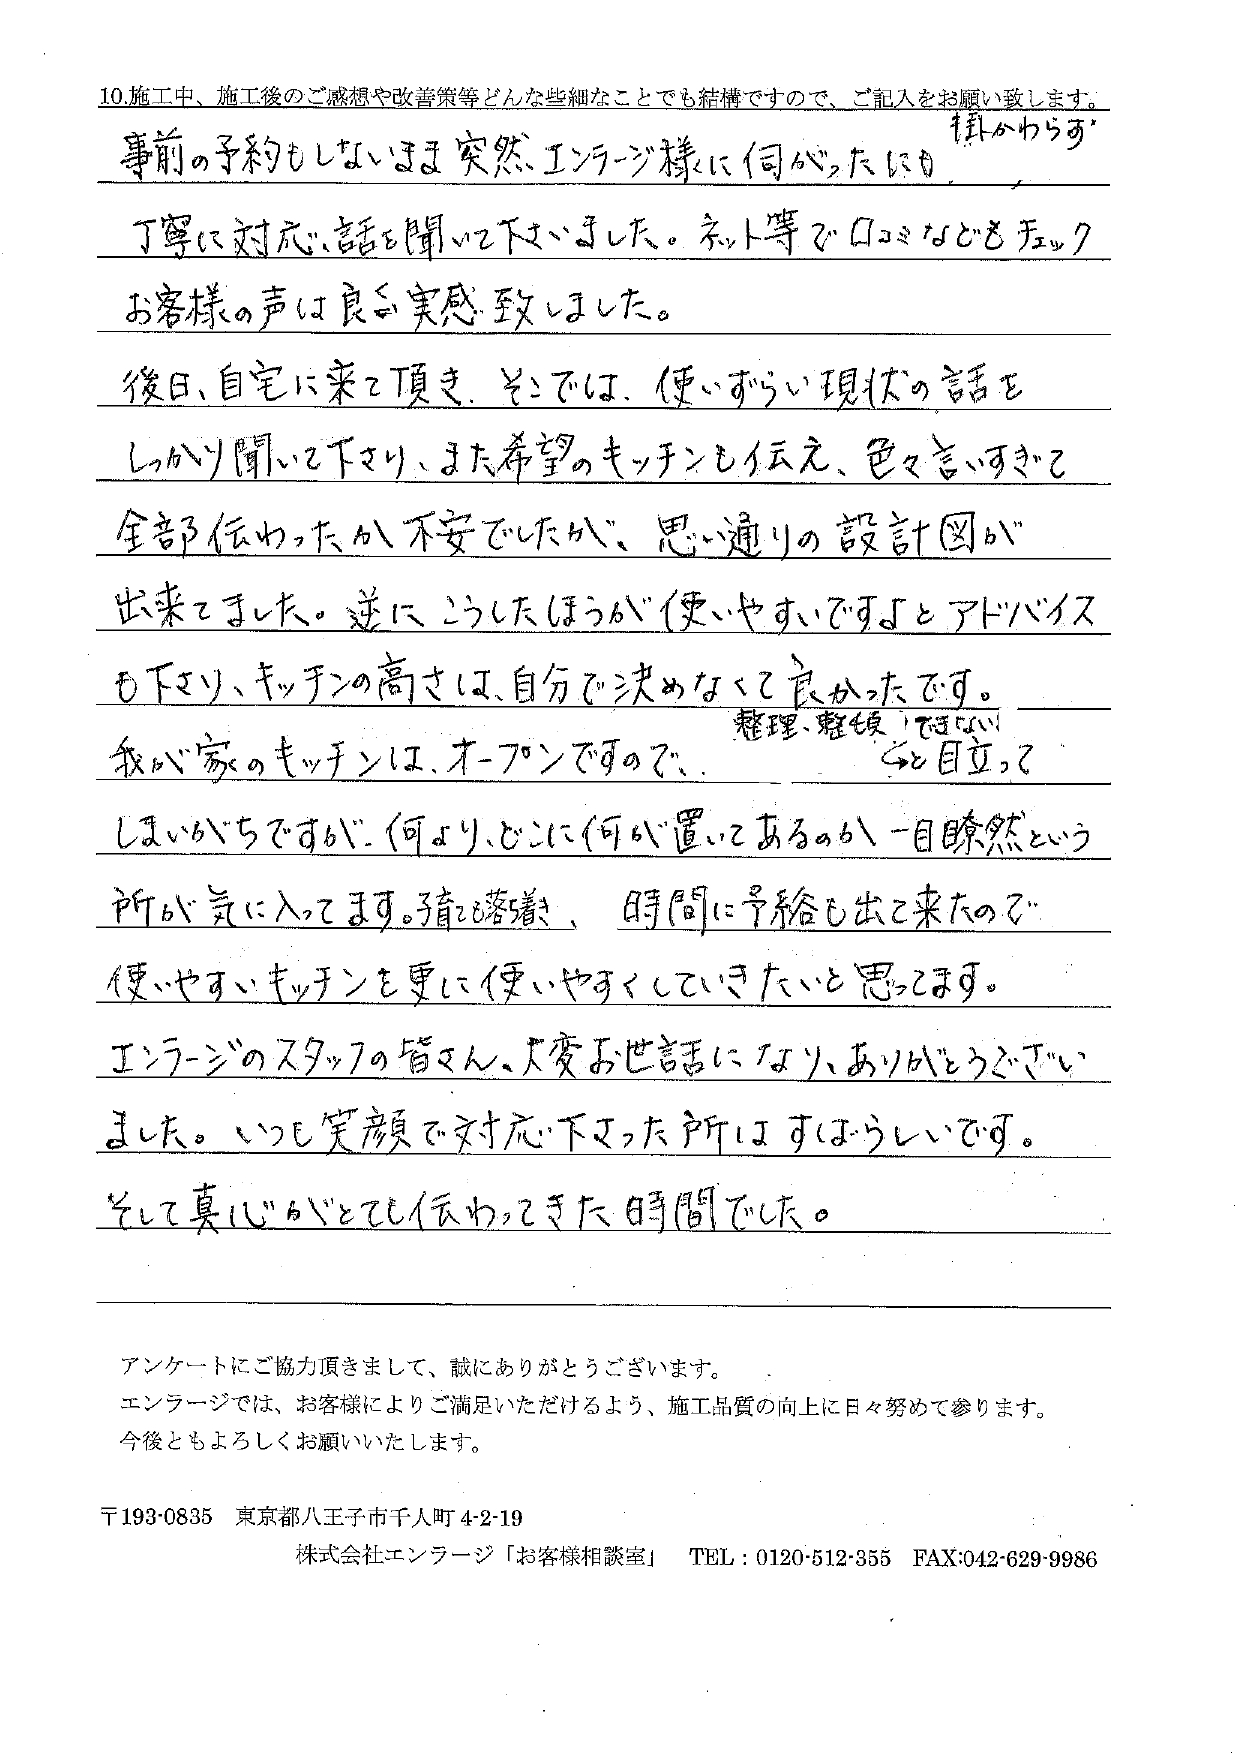 10.施工中、施工後のご感想や改善策等どんな些細なことでも結構ですので、ご記入をお願い致します。
事前の予約もしないまま突然、エンラージ様に伺がったにも掛かわらず
丁寧に対応、話を聞いて下さいました。ネット等で口コミなどもチェック
お客様の声は良く 実感致しました。
後日、自宅に来て頂き、そこでは、使いずらい現状の話を
しっかり聞いて下さり、また希望のキッチンも伝え、色々言いすぎて
全部伝わったか不安でしたが、思い通りの設計図が
出来てました。逆にこうしたほうが使いやすいですよとアドバイス
も下さり、キッチンの高さは、自分で決めなくて良かったです。
我が家のキッチンは、オープンですので、整理、整頓ができないと目立って
しまいがちですが、何より、どこに何が置いてあるのか一目瞭然という
所が気に入ってます。子育ても落ち着き、時間に予裕も出て来たので
使いやすいキッチンを更に使いやすくしていきたいと思ってます。
エンラージのスタッフの皆さん、大変お世話になり、ありがとうござい
ました。いつも笑顔で対応下さった所はすばらしいです。
そして真心がとても伝わってきた時間でした。
アンケートにご協力頂きまして、誠にありがとうございます。
エンラージでは、お客様によりご満足いただけるよう、施工品質の向上に日々努めて参ります。
今後ともよろしくお願いいたします。
〒193-0835 東京都八王子市千人町 4-2-19
株式会社エンラージ「お客様相談室」 TEL：0120-512-355 FAX:042-629-9986